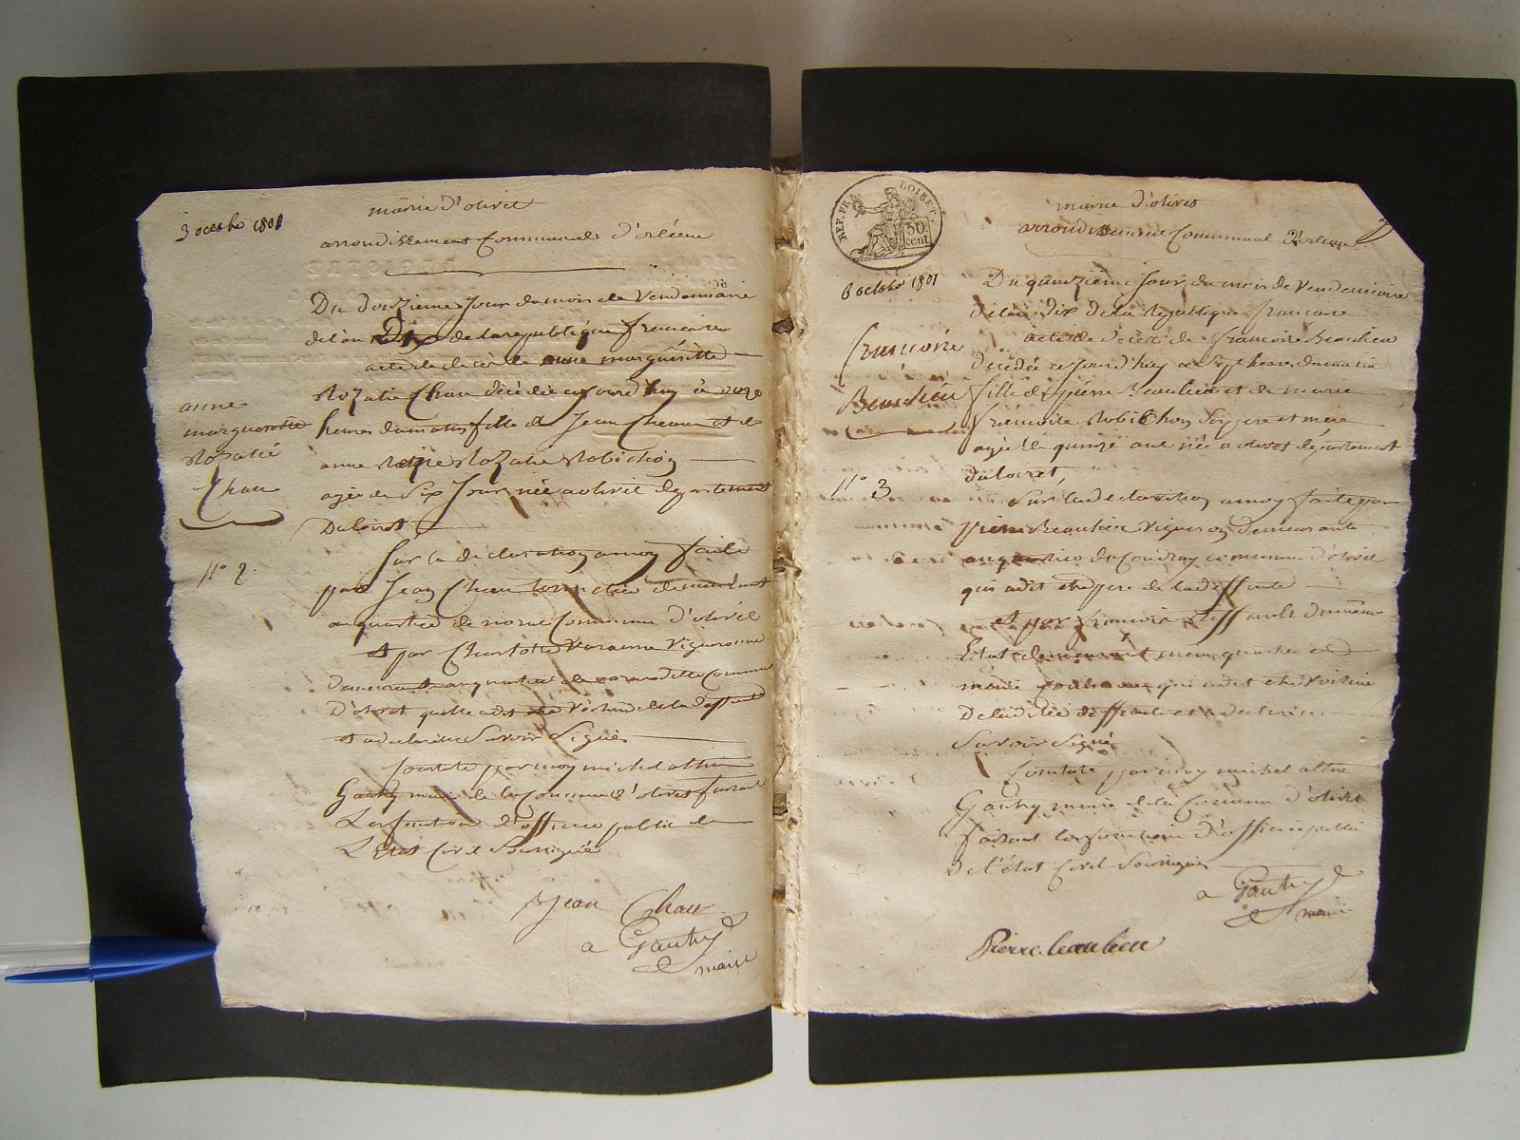 3 octobre 1801
mairie d'olivet
arrondissement Communal d'orléans
Du douzieme Jour du mois de Vendemiaire
de l'an Dix de la republique francaise
acte de décès de anne marguéritte
Rozalie Chau décédée ce jourd'huy à onze
heures du matin fille de Jean Chau et de
anne Rozalie Robichon
agée de Six Jour née a olivet departement
Du loiret
anne
margueritte
Rozalie
Chau
no 2.
Sur la declaration a moy faite
par Jean Chau demeurant
au quartier de Commune d'olivet
& par Charlotte Vigneronne
demeurante au quartier de commune
D'olivet quelle a dit etre Voisine de la deffunte
& a declaré ne Savoir Signer
Constaté par moy michel
Gautry maire de la Commune d'olivet faisant
Les fonctions d'officier public de
L'état Civil Soussigné
Jean Chau
a Gautry
maire
REP. FRA. LOIRET.
50 cent
mairie d'olivet
arrondissement Communal d'orléans
6 octobre 1801
Du quinzième Jour du mois de Vendemiaire
de l'an dix de la republique francaise
acte de décès de francoise Beaulieu
décédée ce jourd'huy heures du matin
fille de pierre Beaulieu et de marie
francoise Robichon Ses pere et mere
agée de quinze ans née a olivet département
du loiret,
francoise
Beaulieu
no 3
Sur la declaration a moy faite par
pierre Beaulieu Vigneron demeurant
au quartier du Coudray commune d'olivet
qui a dit etre pere de la deffunte
& par du même
Etat demeurant même quartier et
même commune qui a dit etre Voisine
De la ditte deffunte et a declaré ne
Savoir Signer
Constaté par moy michel
Gautry maire de la Commune d'olivet
faisant les fonctions d'officier public
De l'état Civil Soussigné
a Gautry
maire
Pierre beaulieu